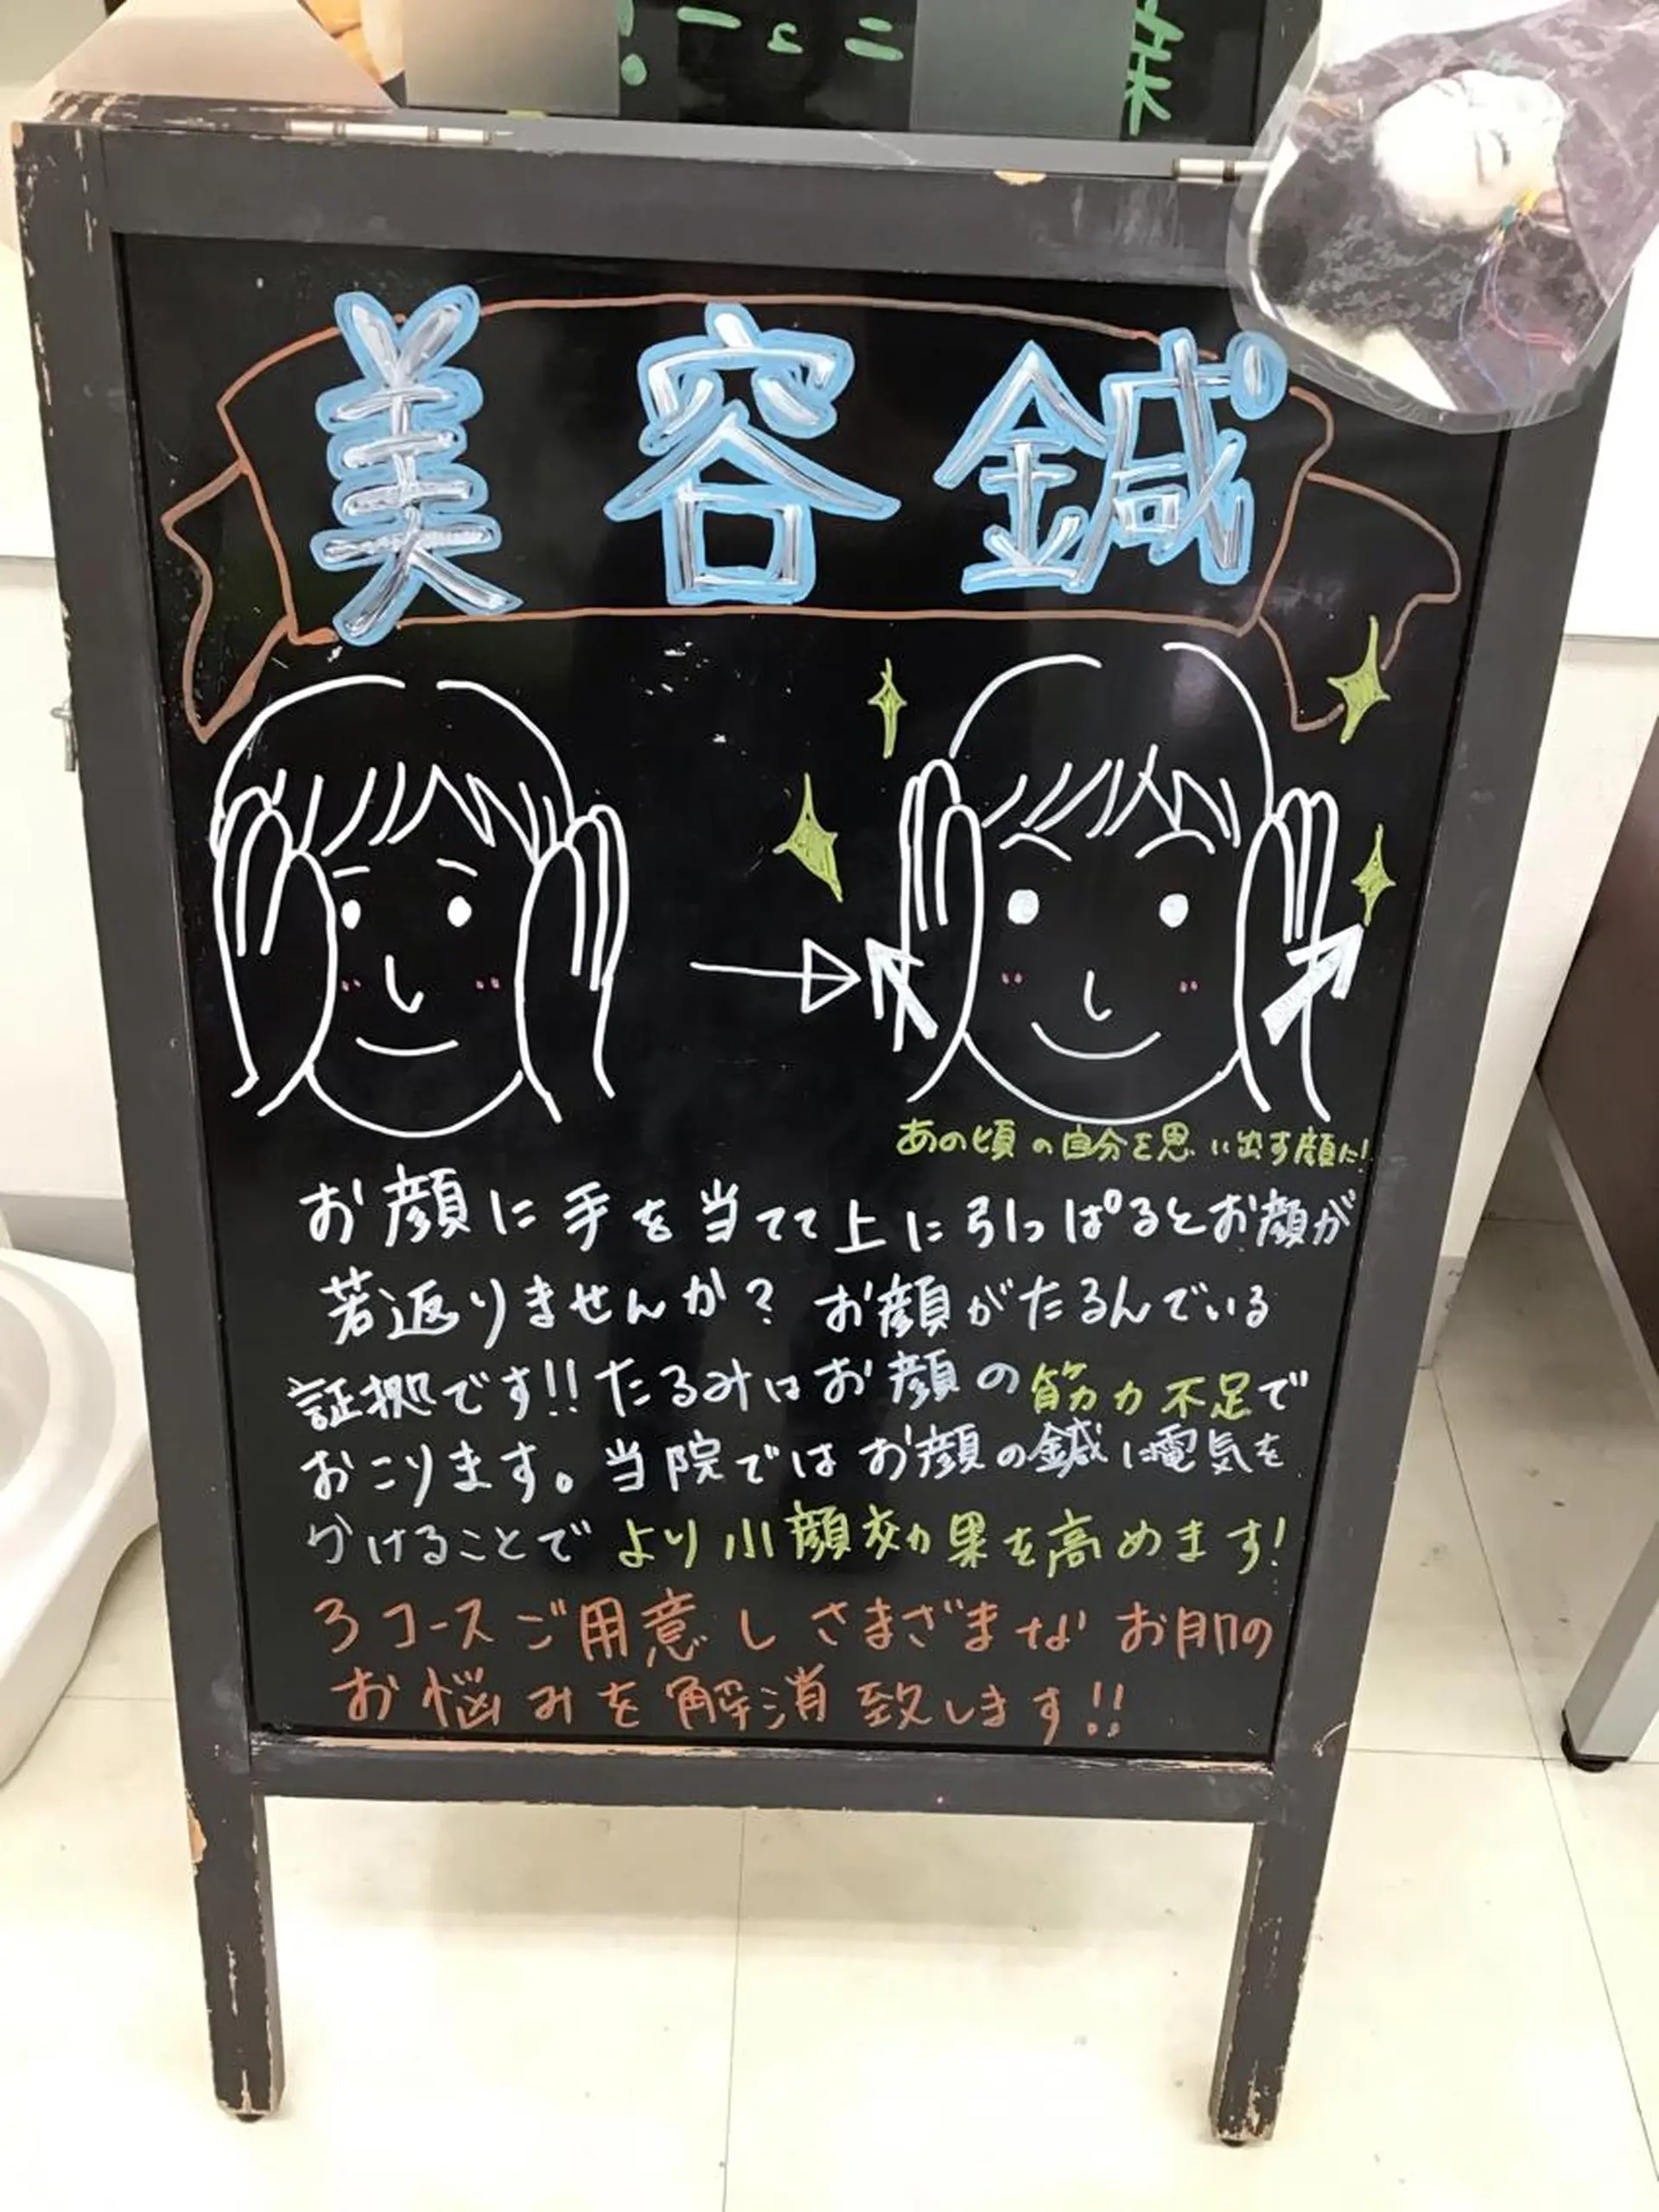 美容鍼
あの頃の自分を思い出す顔に!
お顔に手を当てて上に引っぱるとお顔が
若返りませんか?お顔がたるんでいる
証拠です!!たるみはお顔の筋力不足で
おこります。当院ではお顔の鍼に電気を
かけることでより小顔効果を高めます!
3コースご用意しさまざまなお肌の
お悩みを解消致します!!